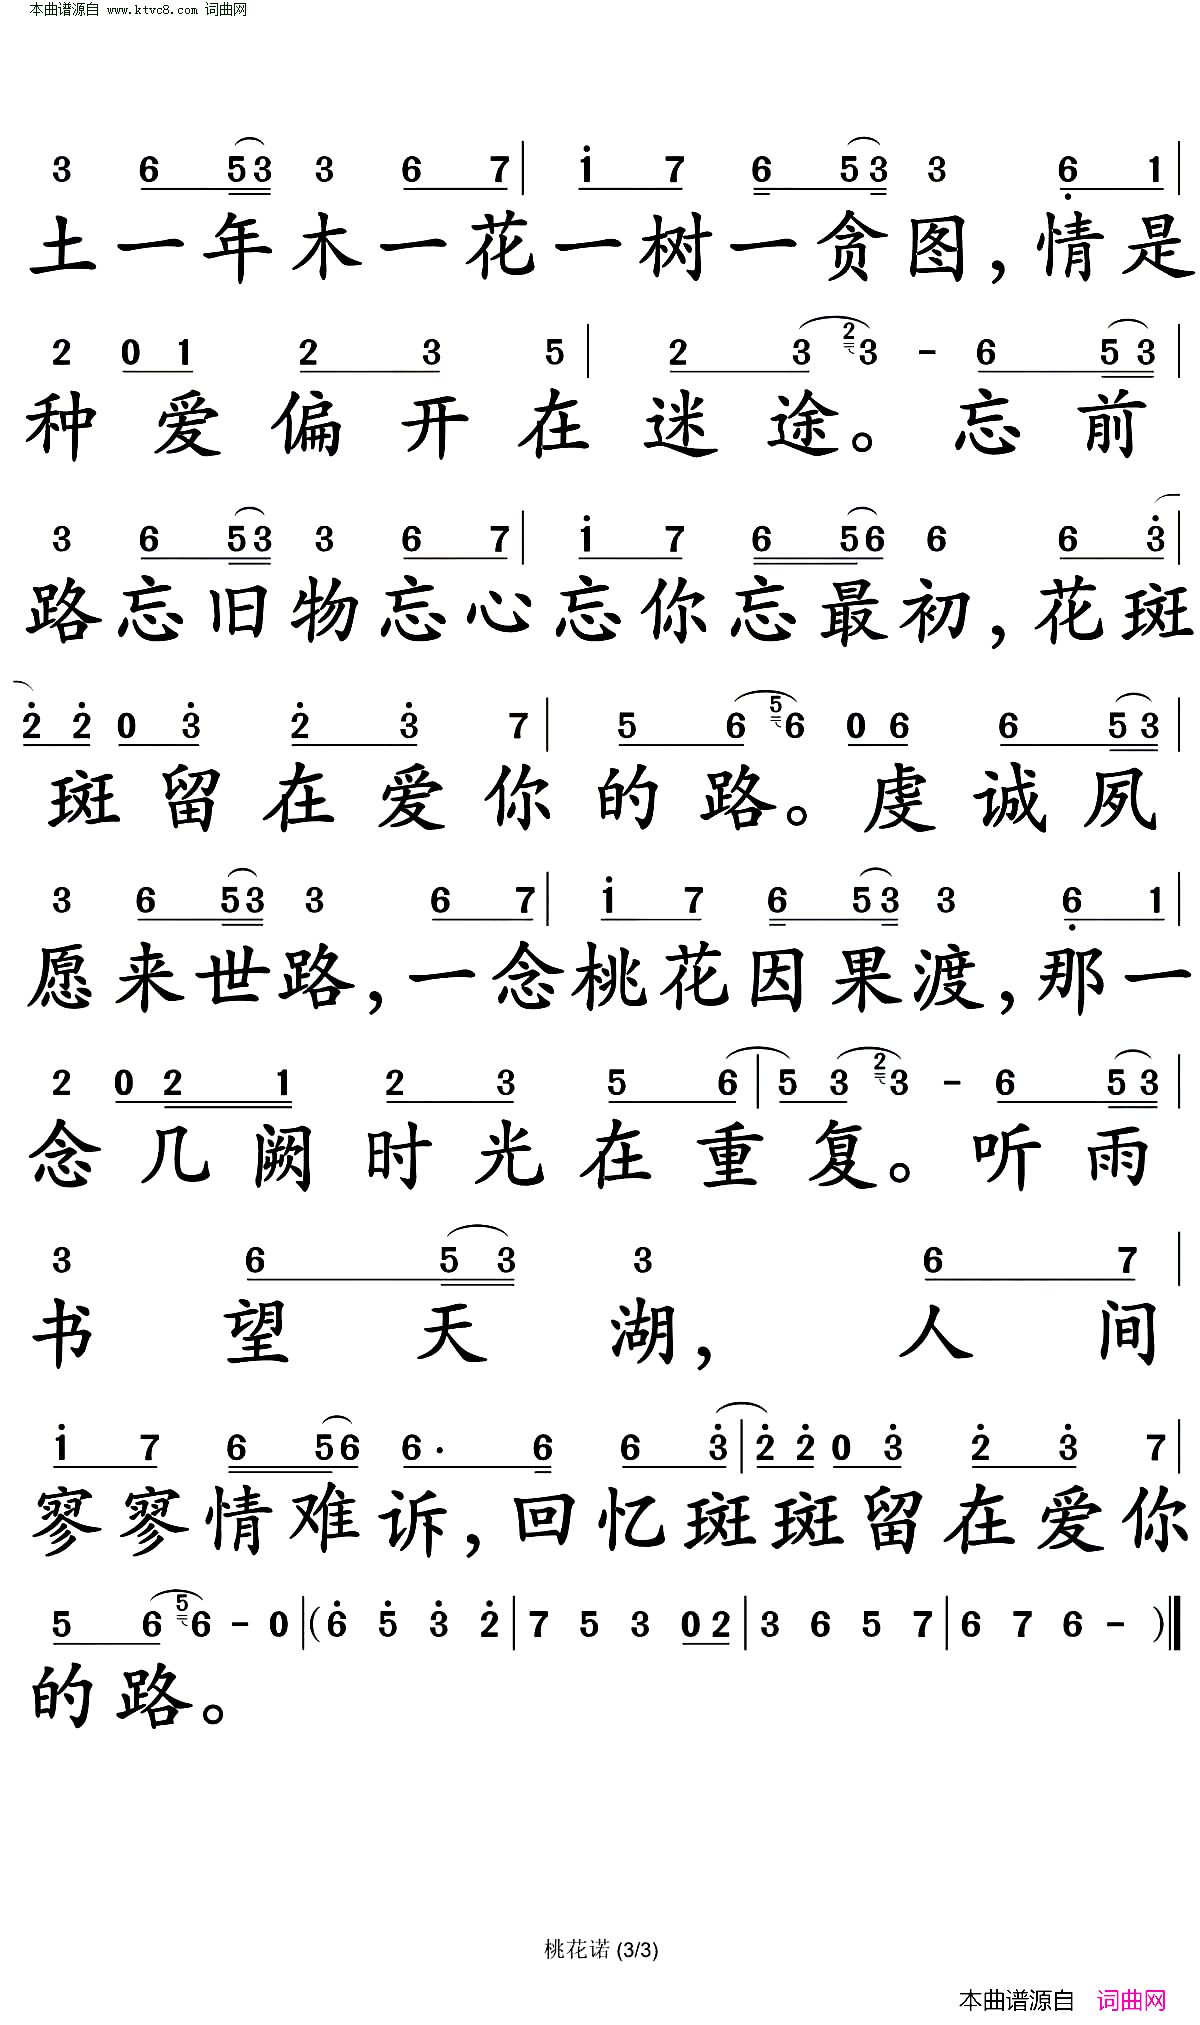 本曲谱源自 www.ktvc8.com 词曲网
3 6 5 3 3 6 7 | 1 7 6 5 3 3 6 1 |
土一年木一花一树一贪图，情是
2 0 1 2 3 5 | 2 3 2 3 - 6 5 3 |
种爱偏开在迷途。忘前
3 6 5 3 3 6 7 | 1 7 6 5 6 6 6 3 |
路忘旧物忘心忘你忘最初，花斑
2 2 0 3 2 3 7 | 5 6 5 6 0 6 6 5 3 |
斑留在爱你的路。虔诚夙
3 6 5 3 3 6 7 | 1 7 6 5 3 3 6 1 |
愿来世路，一念桃花因果渡，那一
2 0 2 1 2 3 5 6 | 5 3 2 3 - 6 5 3 |
念几阙时光在重复。听雨
3 6 5 3 3 6 7 |
书望天湖，人间
1 7 6 5 6 6 · 6 6 3 | 2 2 0 3 2 3 7 |
寥寥情难诉，回忆斑斑留在爱你
5 6 5 6 - 0 | ( 6 5 3 2 | 7 5 3 0 2 | 3 6 5 7 | 6 7 6 - ) ‖
的路。
桃花诺 (3/3)
本曲谱源自 词曲网